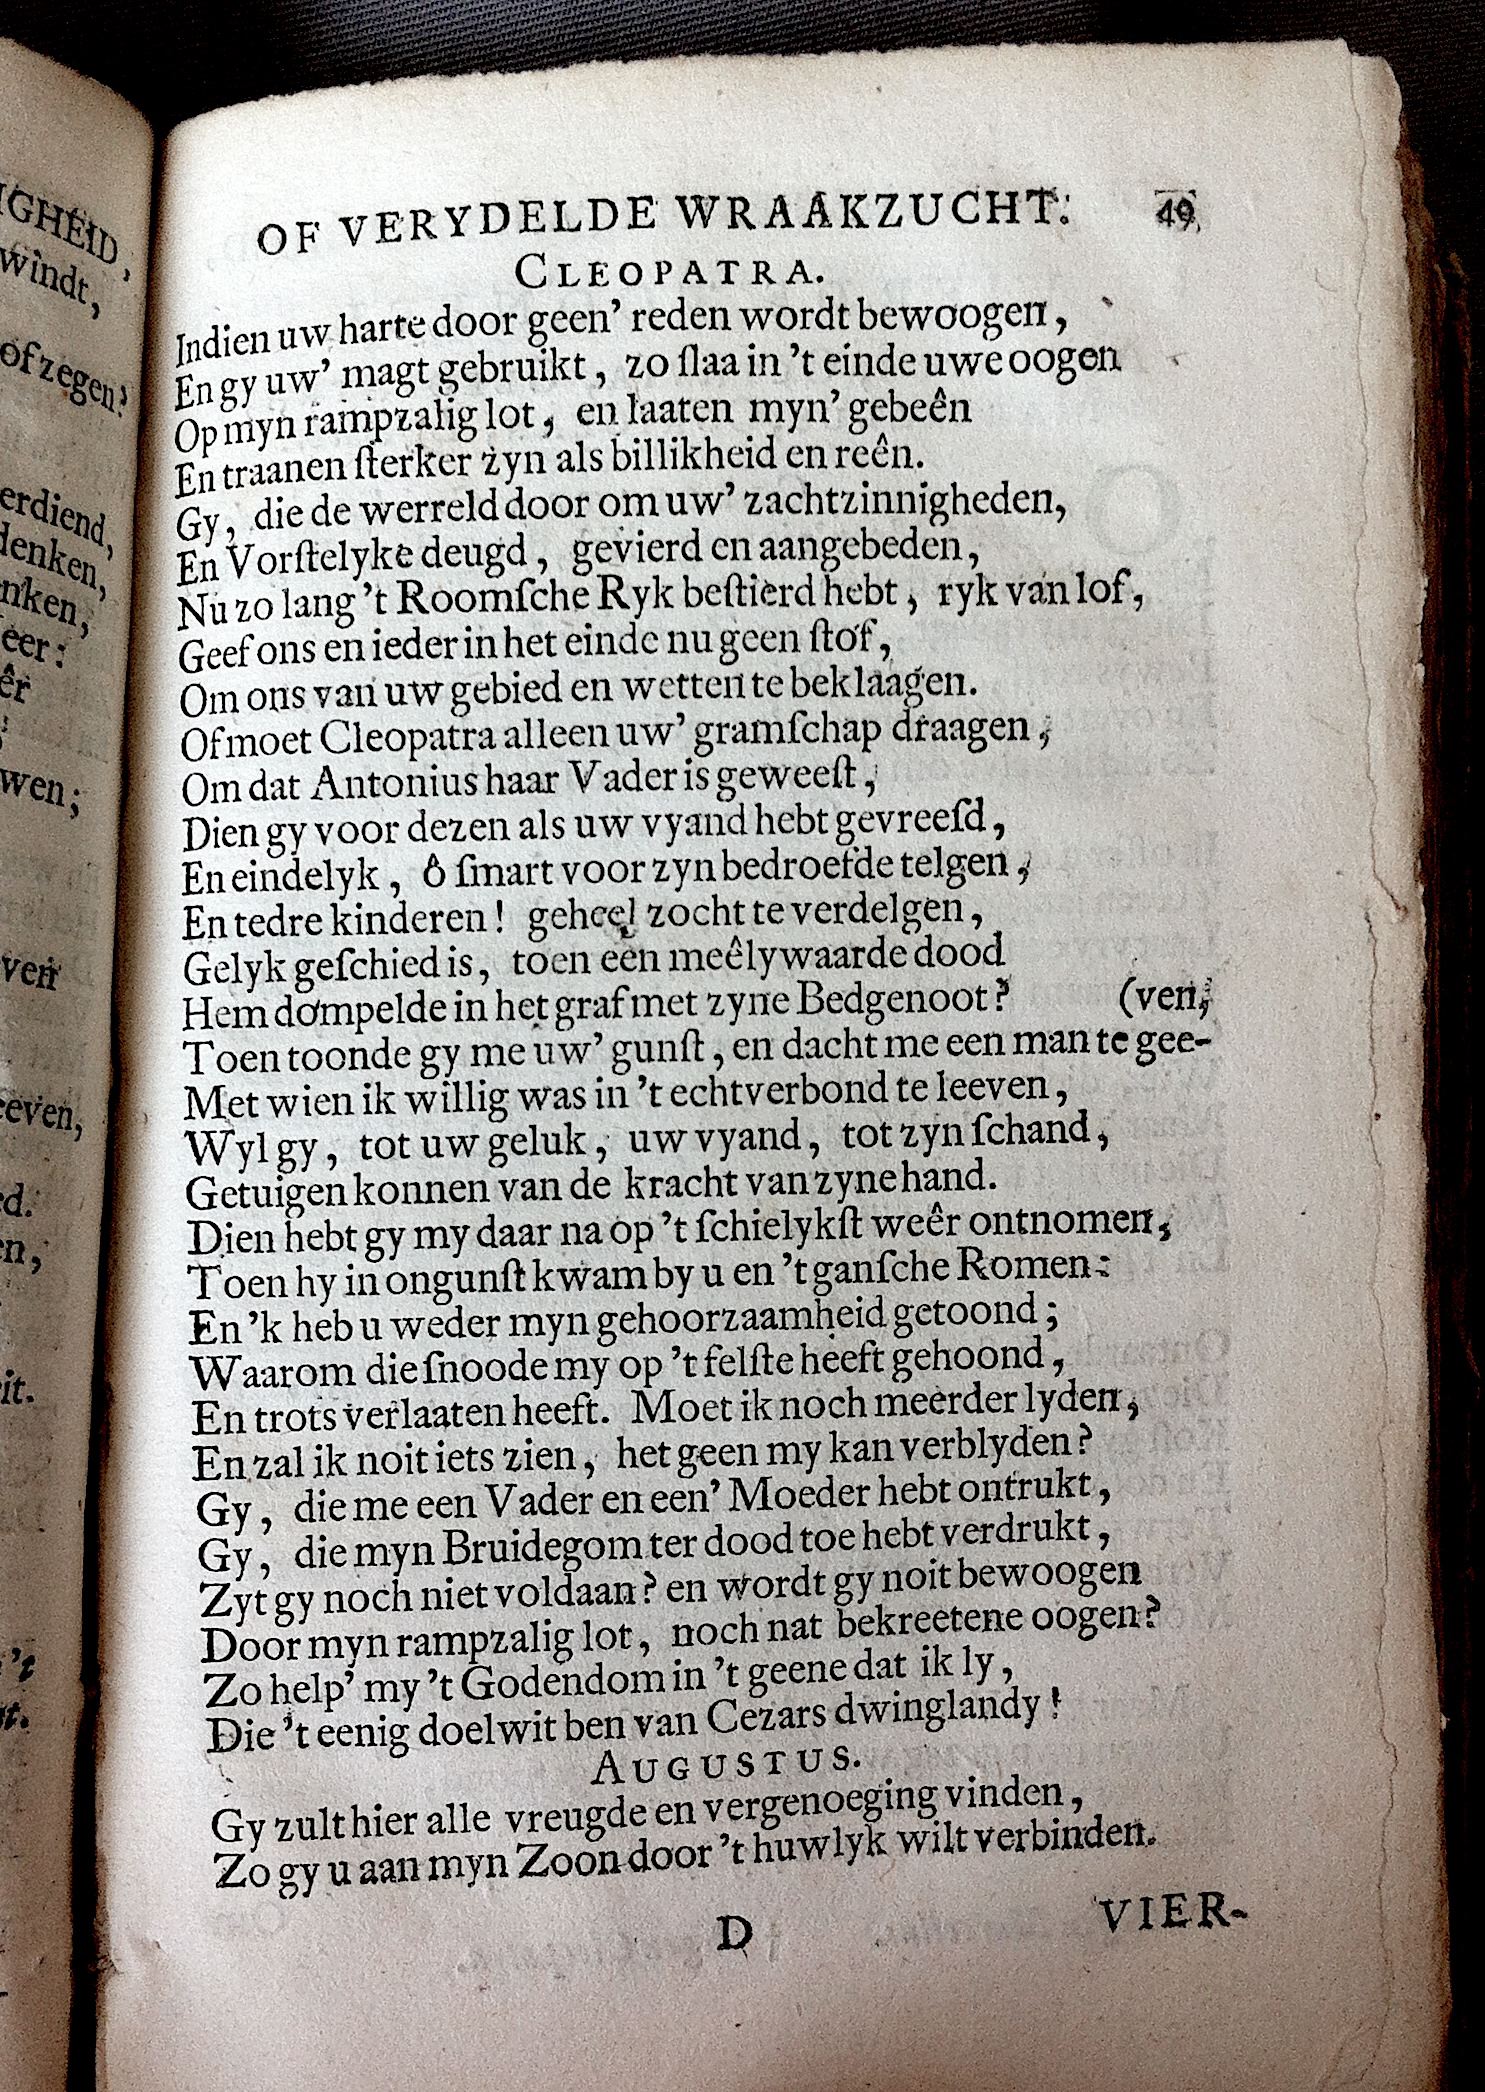 OF VERYDELDE WRAAKZUCHT. 49
CLEOPATRA.
Indien uw harte door geen’ reden wordt bewoogen,
En gy uw’ magt gebruikt, zo ſlaa in ’t einde uwe oogen
Op myn rampzalig lot, en laaten myn’ gebeên
En traanen ſterker zyn als billikheid en reên.
Gy, die de werreld door om uw’ zachtzinnigheden,
En Vorſtelyke deugd, gevierd en aangebeden,
Nu zo lang ’t Roomſche Ryk beſtierd hebt, ryk van lof,
Geef ons en ieder in het einde nu geen ſtof,
Om ons van uw gebied en wetten te beklaagen.
Of moet Cleopatra alleen uw’ gramſchap draagen,
Om dat Antonius haar Vader is geweeſt,
Dien gy voor dezen als uw vyand hebt gevreeſd,
En eindelyk, ô ſmart voor zyn bedroefde telgen,
En tedre kinderen! geheel zocht te verdelgen,
Gelyk geſchied is, toen een meêlywaarde dood
Hem dompelde in het graf met zyne Bedgenoot? (ven,
Toen toonde gy me uw’ gunſt, en dacht me een man te gee-
Met wien ik willig was in ’t echtverbond te leeven,
Wyl gy, tot uw geluk, uw vyand, tot zyn ſchand,
Getuigen konnen van de kracht van zyne hand.
Dien hebt gy my daar na op ’t ſchielykſt weêr ontnomen,
Toen hy in ongunſt kwam by u en ’t ganſche Romen:
En ’k heb u weder myn gehoorzaamheid getoond;
Waarom die ſnoode my op ’t felſte heeft gehoond,
En trots verlaaten heeft. Moet ik noch meerder lyden,
En zal ik noit iets zien, het geen my kan verblyden?
Gy, die me een Vader en een’ Moeder hebt ontrukt,
Gy, die myn Bruidegom ter dood toe hebt verdrukt,
Zyt gy noch niet voldaan? en wordt gy noit bewoogen
Door myn rampzalig lot, noch nat bekreetene oogen?
Zo help’ my ’t Godendom in ’t geene dat ik ly,
Die ’t eenig doelwit ben van Cezars dwinglandy!
AUGUSTUS.
Gy zult hier alle vreugde en vergenoeging vinden,
Zo gy u aan myn Zoon door ’t huwlyk wilt verbinden.
D VIER-